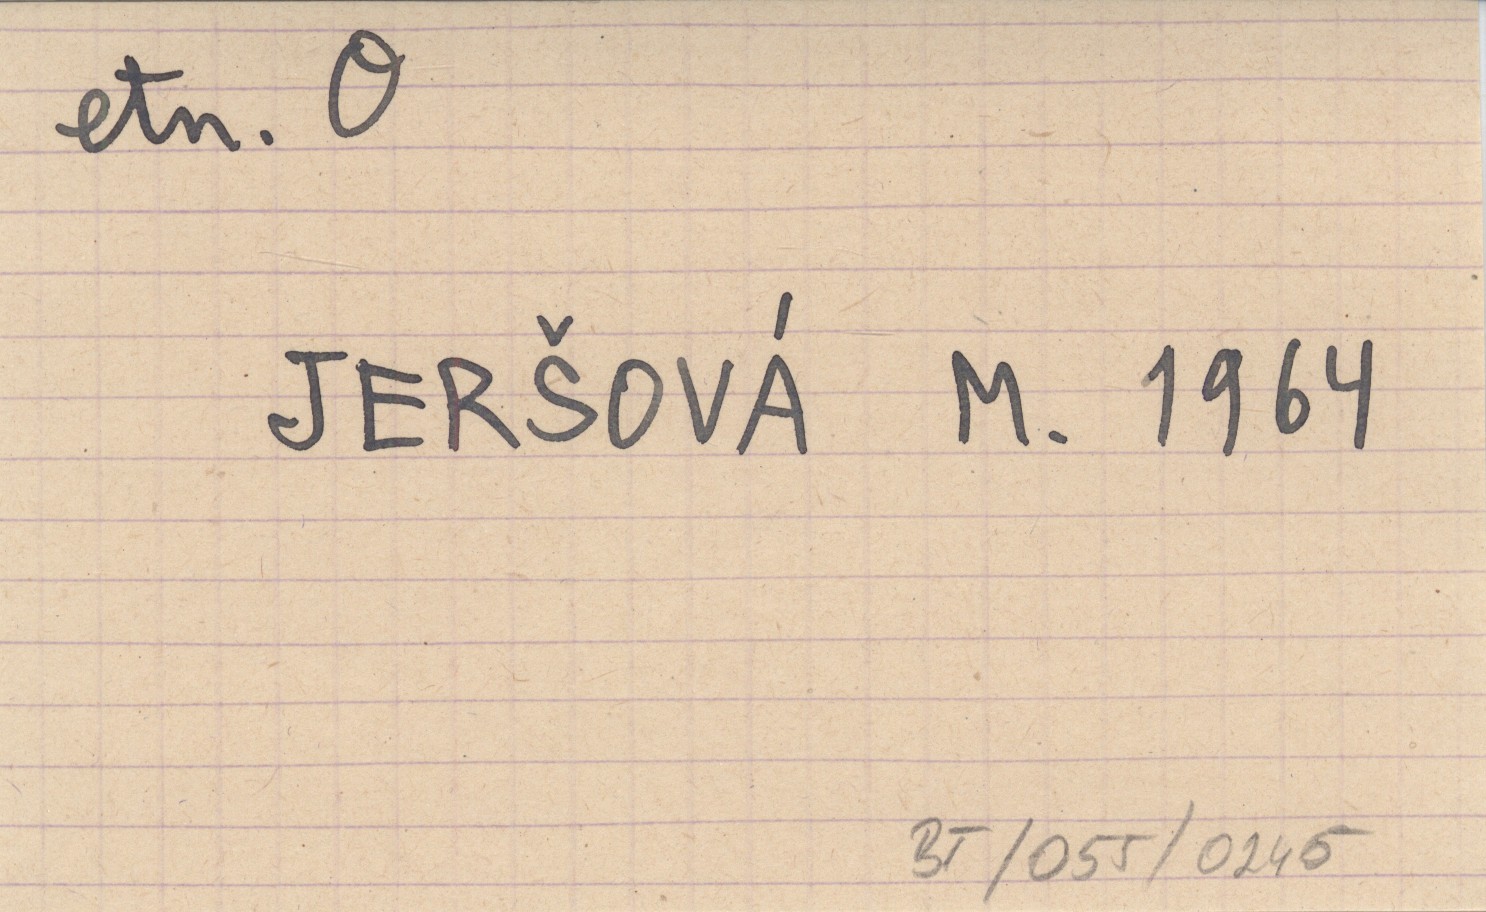 etn. O
JERŠOVÁ M. 1964
BT/055/0245